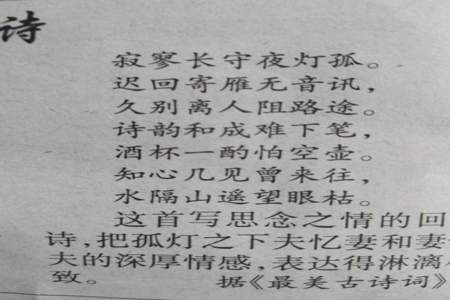 诗
寂寥长守夜灯孤。
迟回寄雁无音讯，
久别离人阻路途。
诗韵和成难下笔，
酒杯一酌怕空壶。
知心几见曾来往，
水隔山遥望眼枯。
这首写思念之情的回
诗，把孤灯之下夫忆妻和妻
夫的深厚情感，表达得淋漓
致。 据《最美古诗词》